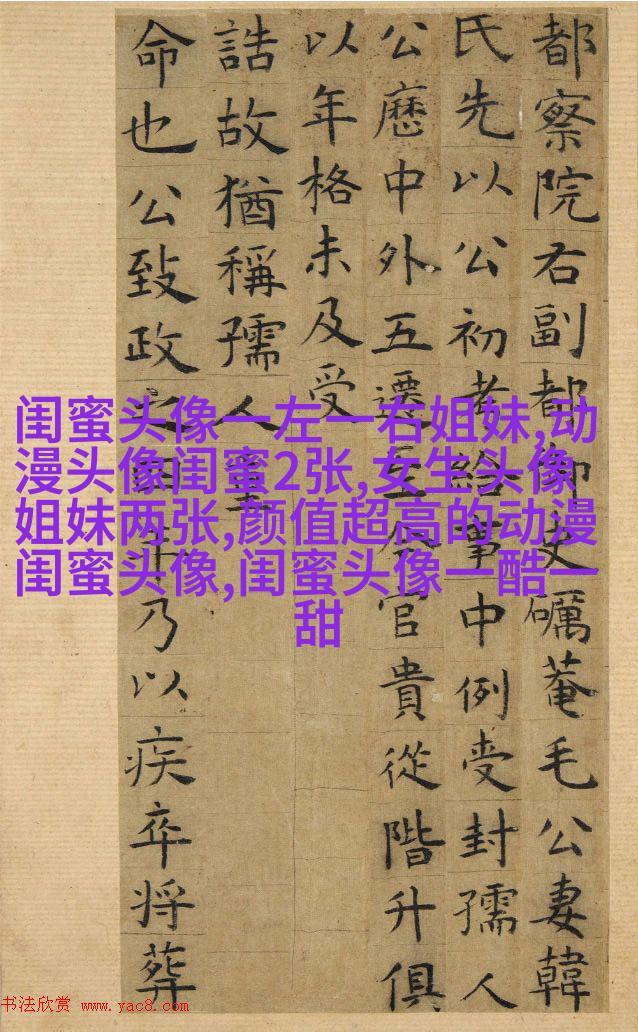 都察院右副都御史礪菴毛公妻韓
氏先以公初考給事中例受封孺人
公歷中外五遷至今官貴從階升俱
以年格未及受
誥故猶稱孺人
命也公致政之年乃以疾卒將葬
闺蜜头像一左一右姐妹,动
漫头像闺蜜2张,女生头像
姐妹两张,颜值超高的动漫
闺蜜头像,闺蜜头像一酷一
甜
书法欣赏 www.yac8.com